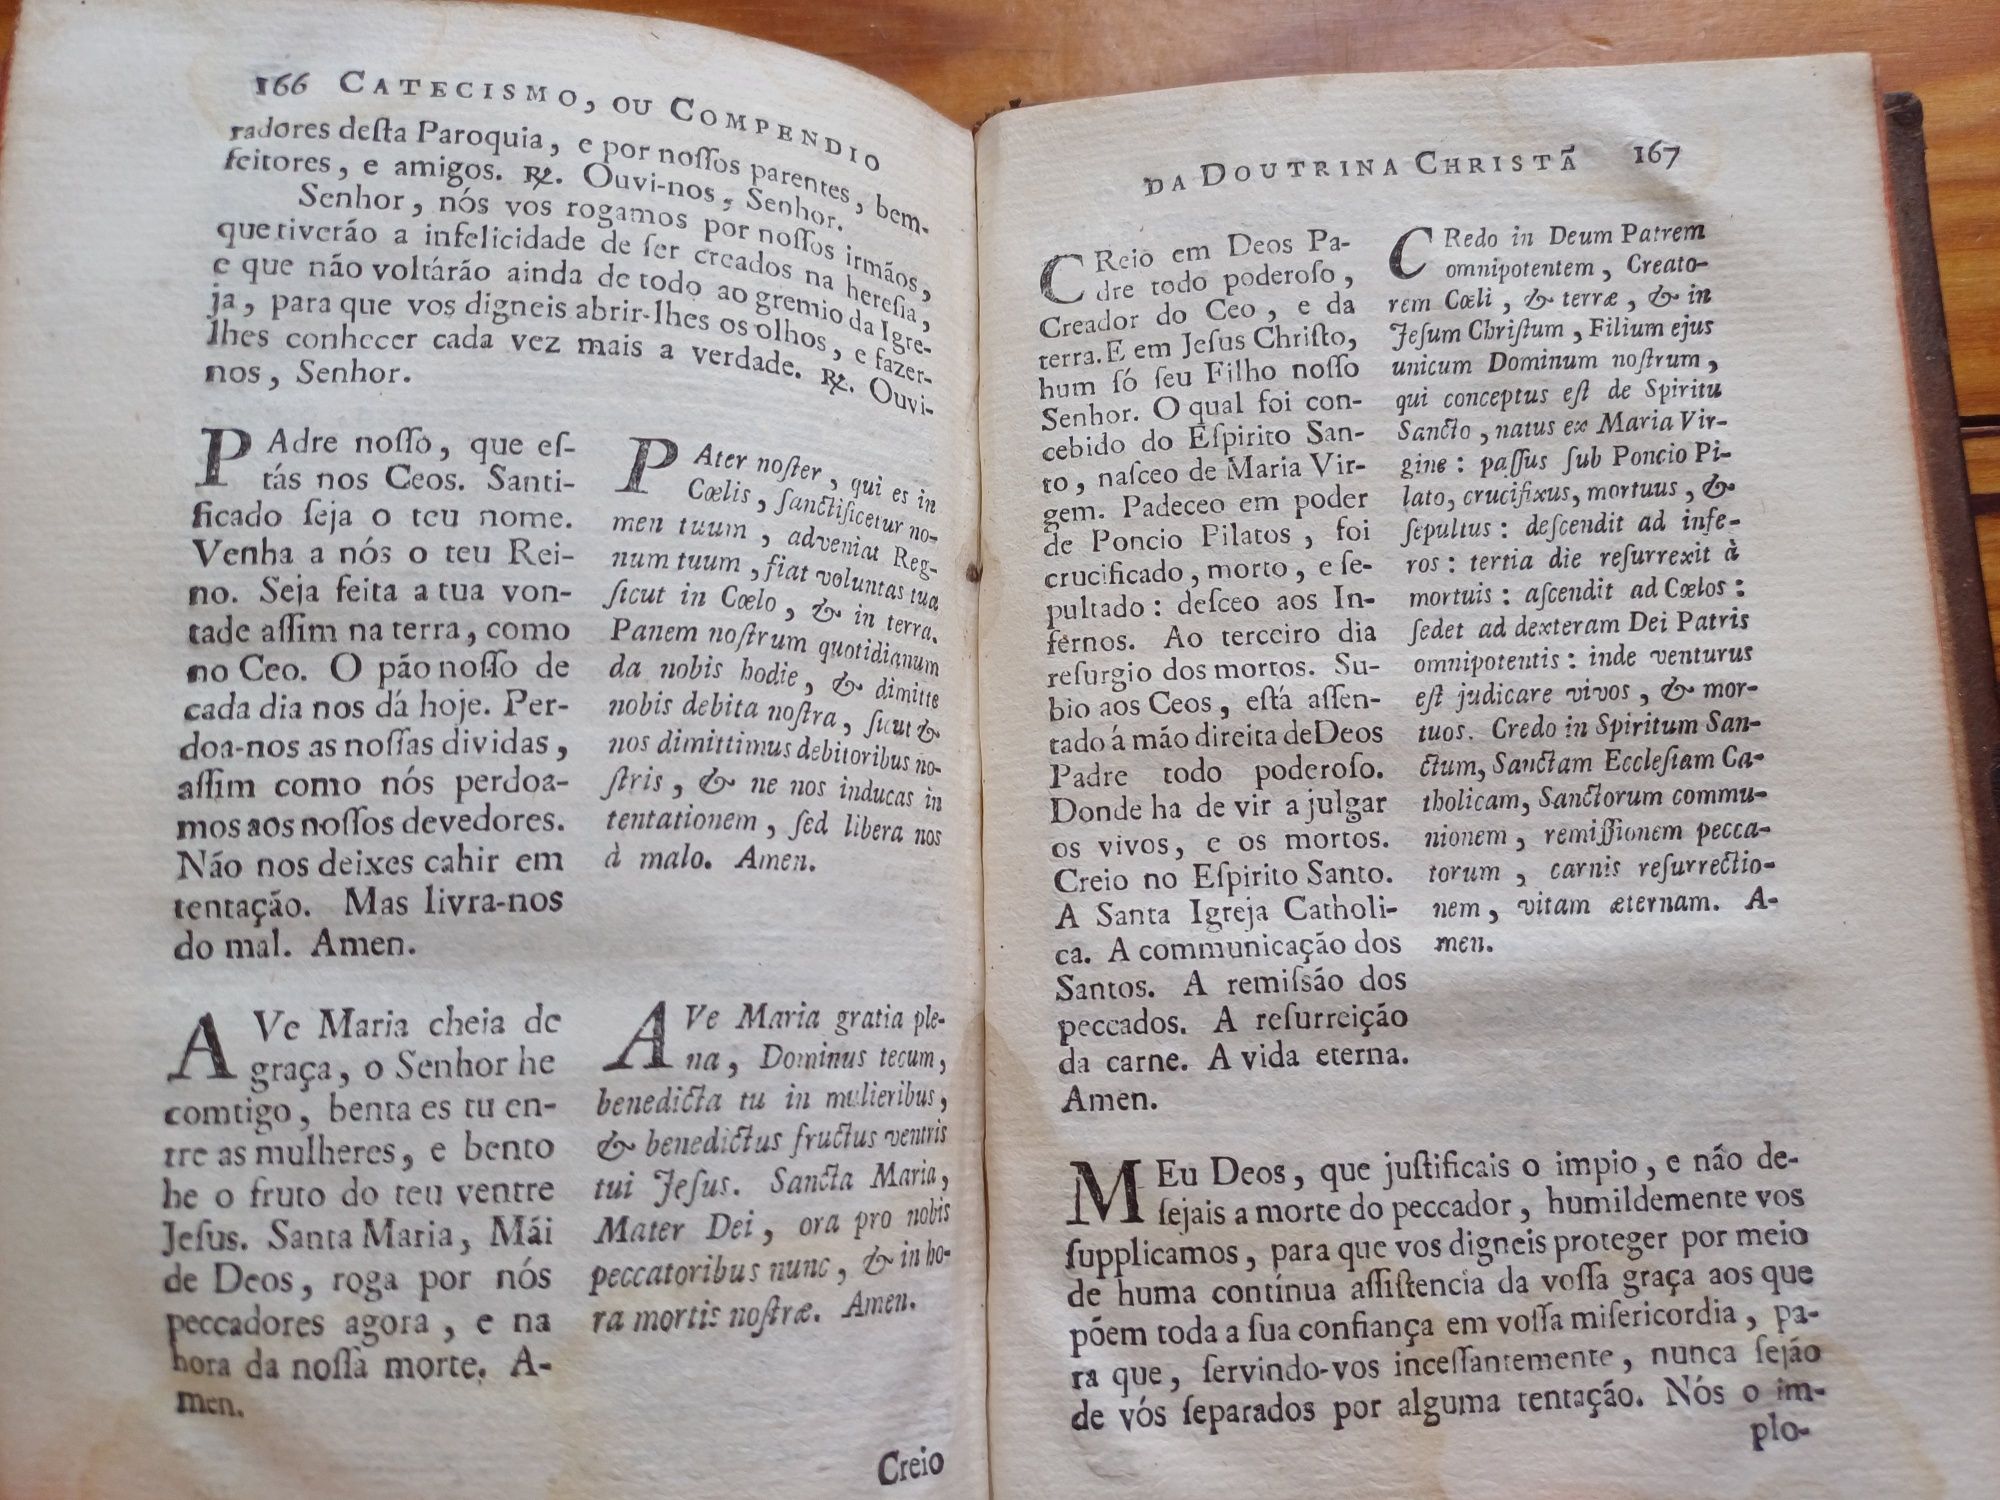 166 CATECISMO, OU COMPENDIO
radores deſta Paroquia, e por noſſos parentes, bem-
feitores, e amigos. ℟. Ouvi-nos, Senhor.
Senhor, nós vos rogamos por noſſos irmãos,
que tiverão a infelicidade de ſer creados na hereſia,
e que não voltárão ainda de todo ao gremio da Igre-
ja, para que vos digneis abrir-lhes os olhos, e fazer-
lhes conhecer cada vez mais a verdade. ℟. Ouvi-
nos, Senhor.
PAdre noſſo, que eſ-
tás nos Ceos. Santi-
ficado ſeja o teu nome.
Venha a nós o teu Rei-
no. Seja feita a tua von-
tade aſſim na terra, como
no Ceo. O pão noſſo de
cada dia nos dá hoje. Per-
doa-nos as noſſas dividas,
aſſim como nós perdoa-
mos aos noſſos devedores.
Não nos deixes cahir em
tentação. Mas livra-nos
do mal. Amen.
PAter noſter, qui es in
Cœlis, ſanctificetur no-
men tuum, adveniat Reg-
num tuum, fiat voluntas tua
ſicut in Cœlo, & in terra.
Panem noſtrum quotidianum
da nobis hodie, & dimitte
nobis debita noſtra, ſicut &
nos dimittimus debitoribus no-
ſtris, & ne nos inducas in
tentationem, ſed libera nos
à malo. Amen.
AVe Maria cheia de
graça, o Senhor he
comtigo, benta es tu en-
tre as mulheres, e bento
he o fruto do teu ventre
Jeſus. Santa Maria, Mái
de Deos, roga por nós
peccadores agora, e na
hora da noſſa morte. A-
men.
AVe Maria gratia ple-
na, Dominus tecum,
benedicta tu in mulieribus,
& benedictus fructus ventris
tui Jeſus. Sancta Maria,
Mater Dei, ora pro nobis
peccatoribus nunc, & in ho-
ra mortis noſtræ. Amen.
Creio
DA DOUTRINA CHRISTÃ 167
CReio em Deos Pa-
dre todo poderoſo,
Creador do Ceo, e da
terra. E em Jeſus Chriſto,
hum ſó ſeu Filho noſſo
Senhor. O qual foi con-
cebido do Eſpirito San-
to, naſceo de Maria Vir-
gem. Padeceo em poder
de Poncio Pilatos, foi
crucificado, morto, e ſe-
pultado: deſceo aos In-
fernos. Ao terceiro dia
reſurgio dos mortos. Su-
bio aos Ceos, eſtá aſſen-
tado á mão direita de Deos
Padre todo poderoſo.
Donde ha de vir a julgar
os vivos, e os mortos.
Creio no Eſpirito Santo.
A Santa Igreja Catholi-
ca. A communicação dos
Santos. A remiſsão dos
peccados. A reſurreição
da carne. A vida eterna.
Amen.
CRedo in Deum Patrem
omnipotentem, Creato-
rem Cœli, & terræ, & in
Jeſum Chriſtum, Filium ejus
unicum Dominum noſtrum,
qui conceptus eſt de Spiritu
Sancto, natus ex Maria Vir-
gine: paſſus ſub Poncio Pi-
lato, crucifixus, mortuus, &
ſepultus: deſcendit ad infe-
ros: tertia die reſurrexit à
mortuis: aſcendit ad Cœlos:
ſedet ad dexteram Dei Patris
omnipotentis: inde venturus
eſt judicare vivos, & mor-
tuos. Credo in Spiritum San-
ctum, Sanctam Eccleſiam Ca-
tholicam, Sanctorum commu-
nionem, remiſſionem pecca-
torum, carnis reſurrectio-
nem, vitam æternam. A-
men.
MEu Deos, que juſtificais o impio, e não de-
ſejais a morte do peccador, humildemente vos
ſupplicamos, para que vos digneis proteger por meio
de huma contínua aſſiſtencia da voſſa graça aos que
põem toda a ſua confiança em voſſa miſericordia, pa-
ra que, ſervindo-vos inceſſantemente, nunca ſejão
de vós ſeparados por alguma tentação. Nós o im-
plo-